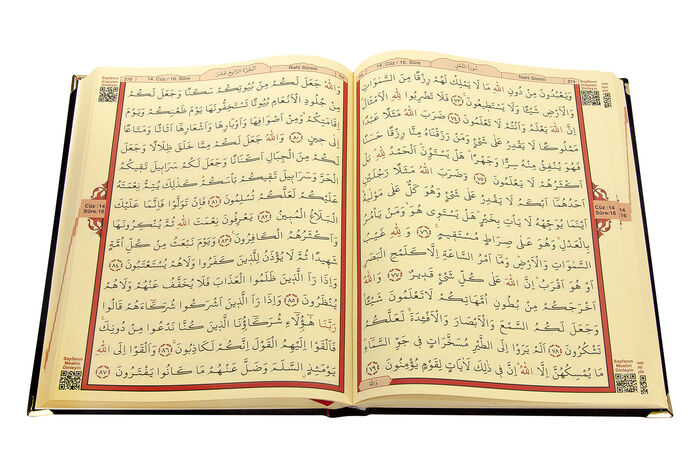 274
Nahl Sûresi
سُورَةُ النَّحْلِ
14. Cüz / 16. Sûre
وَيَعْبُدُونَ مِنْ دُونِ اللّٰهِ مَا لَا يَمْلِكُ لَهُمْ رِزْقًا مِنَ السَّمٰوَاتِ
وَالْاَرْضِ شَيْـًٔا وَلَا يَسْتَطِيعُونَ ﴿٧٣﴾ فَلَا تَضْرِبُوا لِلّٰهِ الْاَمْثَالَ
اِنَّ اللّٰهَ يَعْلَمُ وَاَنْتُمْ لَا تَعْلَمُونَ ﴿٧٤﴾ ضَرَبَ اللّٰهُ مَثَلًا عَبْدًا
مَمْلُوكًا لَا يَقْدِرُ عَلٰى شَيْءٍ وَمَنْ رَزَقْنَاهُ مِنَّا رِزْقًا حَسَنًا
فَهُوَ يُنْفِقُ مِنْهُ سِرًّا وَجَهْرًا هَلْ يَسْتَوُونَ اَلْحَمْدُ لِلّٰهِ بَلْ
اَكْثَرُهُمْ لَا يَعْلَمُونَ ﴿٧٥﴾ وَضَرَبَ اللّٰهُ مَثَلًا رَجُلَيْنِ
اَحَدُهُمَا اَبْكَمُ لَا يَقْدِرُ عَلٰى شَيْءٍ وَهُوَ كَلٌّ عَلٰى مَوْلٰيهُ
اَيْنَمَا يُوَجِّهْهُ لَا يَأْتِ بِخَيْرٍ هَلْ يَسْتَوِي هُوَ وَمَنْ يَأْمُرُ
بِالْعَدْلِ وَهُوَ عَلٰى صِرَاطٍ مُسْتَقِيمٍ ﴿٧٦﴾ وَلِلّٰهِ غَيْبُ
السَّمٰوَاتِ وَالْاَرْضِ وَمَا اَمْرُ السَّاعَةِ اِلَّا كَلَمْحِ الْبَصَرِ
اَوْ هُوَ اَقْرَبُ اِنَّ اللّٰهَ عَلٰى كُلِّ شَيْءٍ قَدِيرٌ ﴿٧٧﴾ وَاللّٰهُ
اَخْرَجَكُمْ مِنْ بُطُونِ اُمَّهَاتِكُمْ لَا تَعْلَمُونَ شَيْـًٔا
وَجَعَلَ لَكُمُ السَّمْعَ وَالْاَبْصَارَ وَالْاَفْـِٔدَةَ لَعَلَّكُمْ
تَشْكُرُونَ ﴿٧٨﴾ اَلَمْ يَرَوْا اِلَى الطَّيْرِ مُسَخَّرَاتٍ فِي جَوِّ السَّمَاءِ
مَا يُمْسِكُهُنَّ اِلَّا اللّٰهُ اِنَّ فِي ذٰلِكَ لَاٰيَاتٍ لِقَوْمٍ يُؤْمِنُونَ ﴿٧٩﴾
وَاللّٰهُ
Cüz :14
Sûre:16
Sayfanın
Mealini
Dinleyin
Nahl Sûresi
اَلْجُزْءُ الرَّابِعُ عَشَرَ
14. Cüz / 16. Sûre
275
وَاللّٰهُ جَعَلَ لَكُمْ مِنْ بُيُوتِكُمْ سَكَنًا وَجَعَلَ لَكُمْ
مِنْ جُلُودِ الْاَنْعَامِ بُيُوتًا تَسْتَخِفُّونَهَا يَوْمَ ظَعْنِكُمْ وَيَوْمَ
اِقَامَتِكُمْ وَمِنْ اَصْوَافِهَا وَاَوْبَارِهَا وَاَشْعَارِهَا اَثَاثًا وَمَتَاعًا
اِلٰى حِينٍ ﴿٨٠﴾ وَاللّٰهُ جَعَلَ لَكُمْ مِمَّا خَلَقَ ظِلَالًا وَجَعَلَ
لَكُمْ مِنَ الْجِبَالِ اَكْنَانًا وَجَعَلَ لَكُمْ سَرَابِيلَ تَقِيكُمُ
الْحَرَّ وَسَرَابِيلَ تَقِيكُمْ بَأْسَكُمْ كَذٰلِكَ يُتِمُّ نِعْمَتَهُ
عَلَيْكُمْ لَعَلَّكُمْ تُسْلِمُونَ ﴿٨١﴾ فَاِنْ تَوَلَّوْا فَاِنَّمَا عَلَيْكَ
الْبَلَاغُ الْمُبِينُ ﴿٨٢﴾ يَعْرِفُونَ نِعْمَتَ اللّٰهِ ثُمَّ يُنْكِرُونَهَا
وَاَكْثَرُهُمُ الْكَافِرُونَ ﴿٨٣﴾ وَيَوْمَ نَبْعَثُ مِنْ كُلِّ اُمَّةٍ
شَهِيدًا ثُمَّ لَا يُؤْذَنُ لِلَّذِينَ كَفَرُوا وَلَا هُمْ يُسْتَعْتَبُونَ ﴿٨٤﴾
وَاِذَا رَاَ الَّذِينَ ظَلَمُوا الْعَذَابَ فَلَا يُخَفَّفُ عَنْهُمْ وَلَا هُمْ
يُنْظَرُونَ ﴿٨٥﴾ وَاِذَا رَاَ الَّذِينَ اَشْرَكُوا شُرَكَاءَهُمْ قَالُوا
رَبَّنَا هٰٓؤُلَاءِ شُرَكَاؤُنَا الَّذِينَ كُنَّا نَدْعُوا مِنْ دُونِكَ
فَاَلْقَوْا اِلَيْهِمُ الْقَوْلَ اِنَّكُمْ لَكَاذِبُونَ ﴿٨٦﴾ وَاَلْقَوْا اِلَى اللّٰهِ
يَوْمَئِذٍ السَّلَمَ وَضَلَّ عَنْهُمْ مَا كَانُوا يَفْتَرُونَ ﴿٨٧﴾
Cüz :14
Sûre:16
Sayfanın
Mealini
Dinleyin